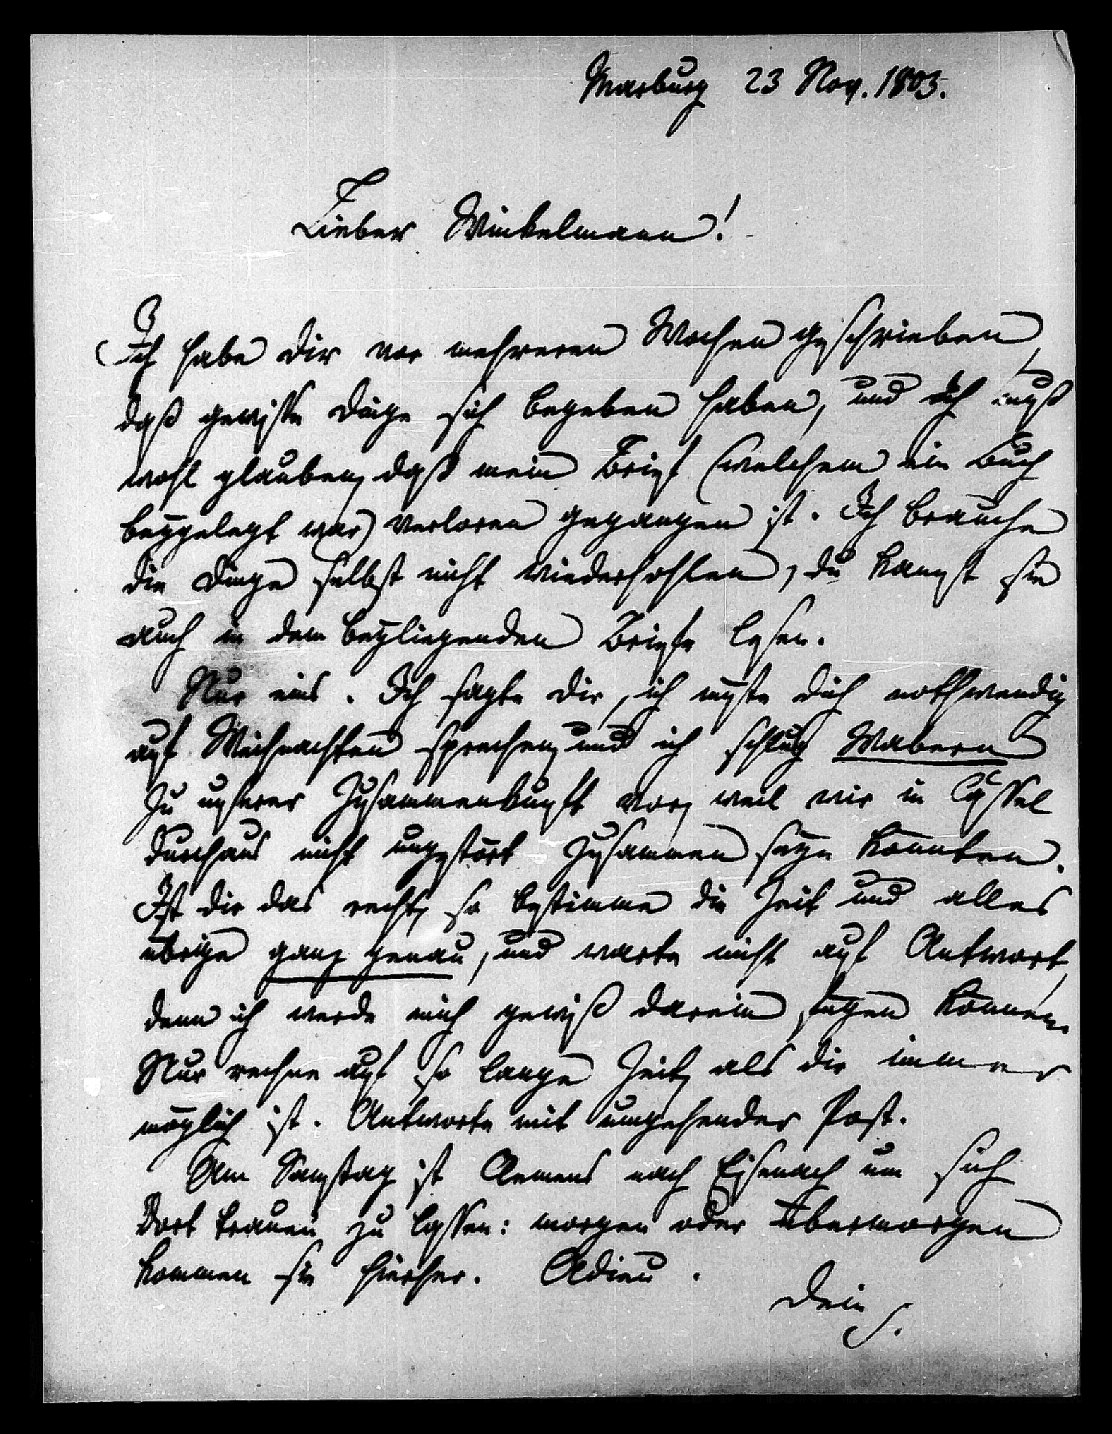 Marburg 23 Nov. 1803.
Lieber Winkelmann!
Ich habe dir vor mehreren Wochen geschrieben,
daß gewisse Dinge sich begeben haben, und ich muß
wohl glauben, daß mein Brief (welchem ein Buch
beygelegt war) verloren gegangen ist. Ich brauche
die Dinge selbst nicht wiederhohlen, du kannst sie
auch in dem beyliegenden Briefe lesen.
Nur eins. Ich sagte dir, ich müste dich nothwendig
auf Weihnachten sprechen, und ich schlug Wabern
zu unserer Zusammenkunft vor, weil wir in Cassel
durchaus nicht ungestört zusammen seyn könnten.
Ist dir das recht, so bestimme die Zeit und alles
übrige ganz genau, und warte nicht auf Antwort,
denn ich werde mich gewiß darein fügen können.
Nur rechne auf so lange Zeit, als dir immer
möglich ist. Antworte mit umgehender Post.
Am Samstag ist Clemens nach Eisenach um sich
dort trauen zu lassen: morgen oder übermorgen
kommen sie hierher. Adieu.
Dein S.